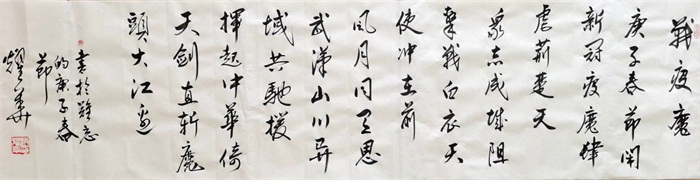 戰疫魔
庚子春節闹
新冠疫魔肆
虐荊楚天
眾志成城阻
擊戰白衣天
使冲在前
風月同天思
武漢山川异
域共馳援
揮起中華倚
天劍直斬魔
頭大江邊
書於難忘
的庚子春
節
耀華